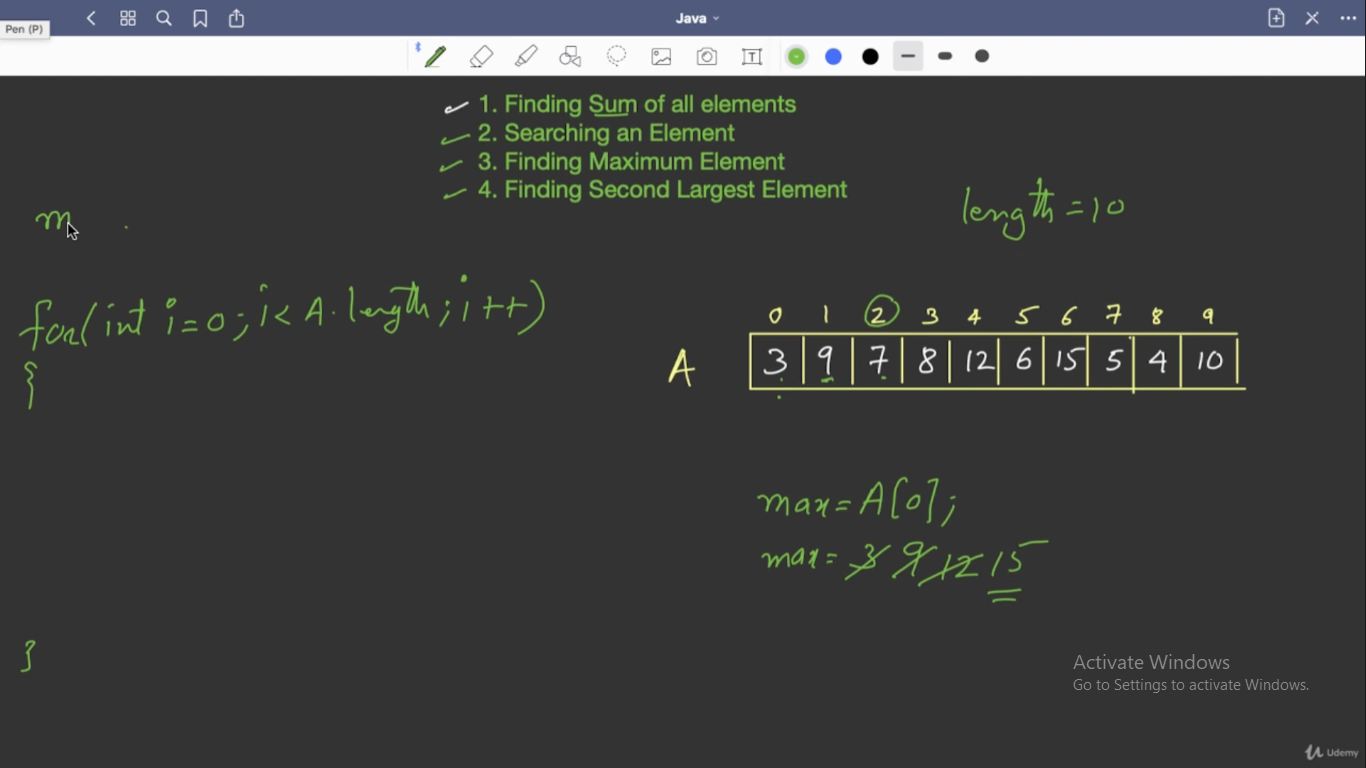 Java
Pen (P)
1. Finding Sum of all elements
2. Searching an Element
3. Finding Maximum Element
4. Finding Second Largest Element
length = 10
m
for(int i=0; i< A.length; i++)
{
}
0 1 2 3 4 5 6 7 8 9
A 3 9 7 8 12 6 15 5 4 10
max = A[0];
max = 3 9 12 15
Activate Windows
Go to Settings to activate Windows.
Udemy